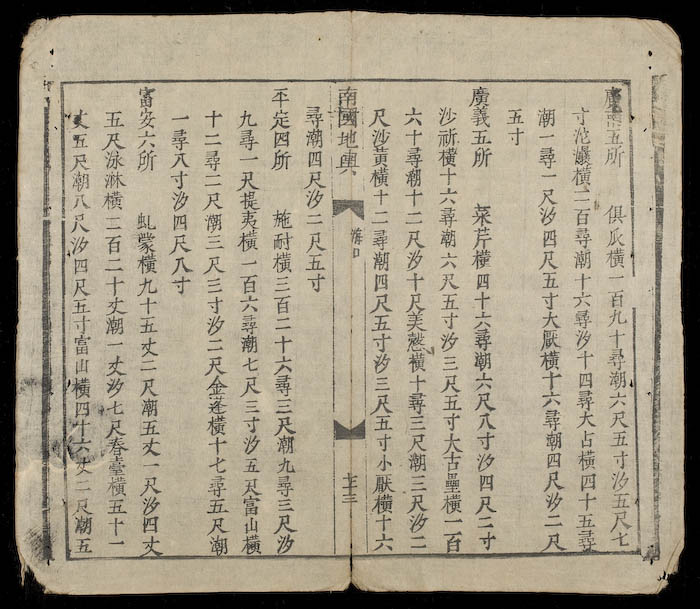 廣南五所　俱瓜橫一百九十尋潮六尺五寸汐五尺七
寸沱㶚橫二百尋潮十六尋汐十四尋大占橫四十五尋
潮一尋一尺汐四尺五寸大厭橫十六尋潮四尺汐二尺
五寸
廣義五所　菜芹橫四十六尋潮六尺八寸汐四尺二寸
沙祈橫十六尋潮六尺五寸汐三尺五寸大古壘橫一百
六十尋潮十二尺汐十尺美慤橫十尋三尺潮三尺汐二
尺沙黃橫十二尋潮四尺五寸汐三尺五寸小厭橫十六
南國地輿
海口
十三
尋潮四尺汐二尺五寸
平定四所　施耐橫三百二十六尋三尺潮九尋三尺汐
九尋一尺提夷橫一百六尋潮七尺三寸汐五尺富山橫
十二尋二尺潮三尺三寸汐二尺金蓬橫十七尋五尺潮
一尋八寸汐四尺八寸
富安六所　虬蒙橫九十五丈二尺潮五丈一尺汐四丈
五尺泳淋橫三百二十丈潮一丈汐七尺春臺橫五十一
丈五尺潮八尺汐四尺五寸富山橫四十六丈二尺潮五